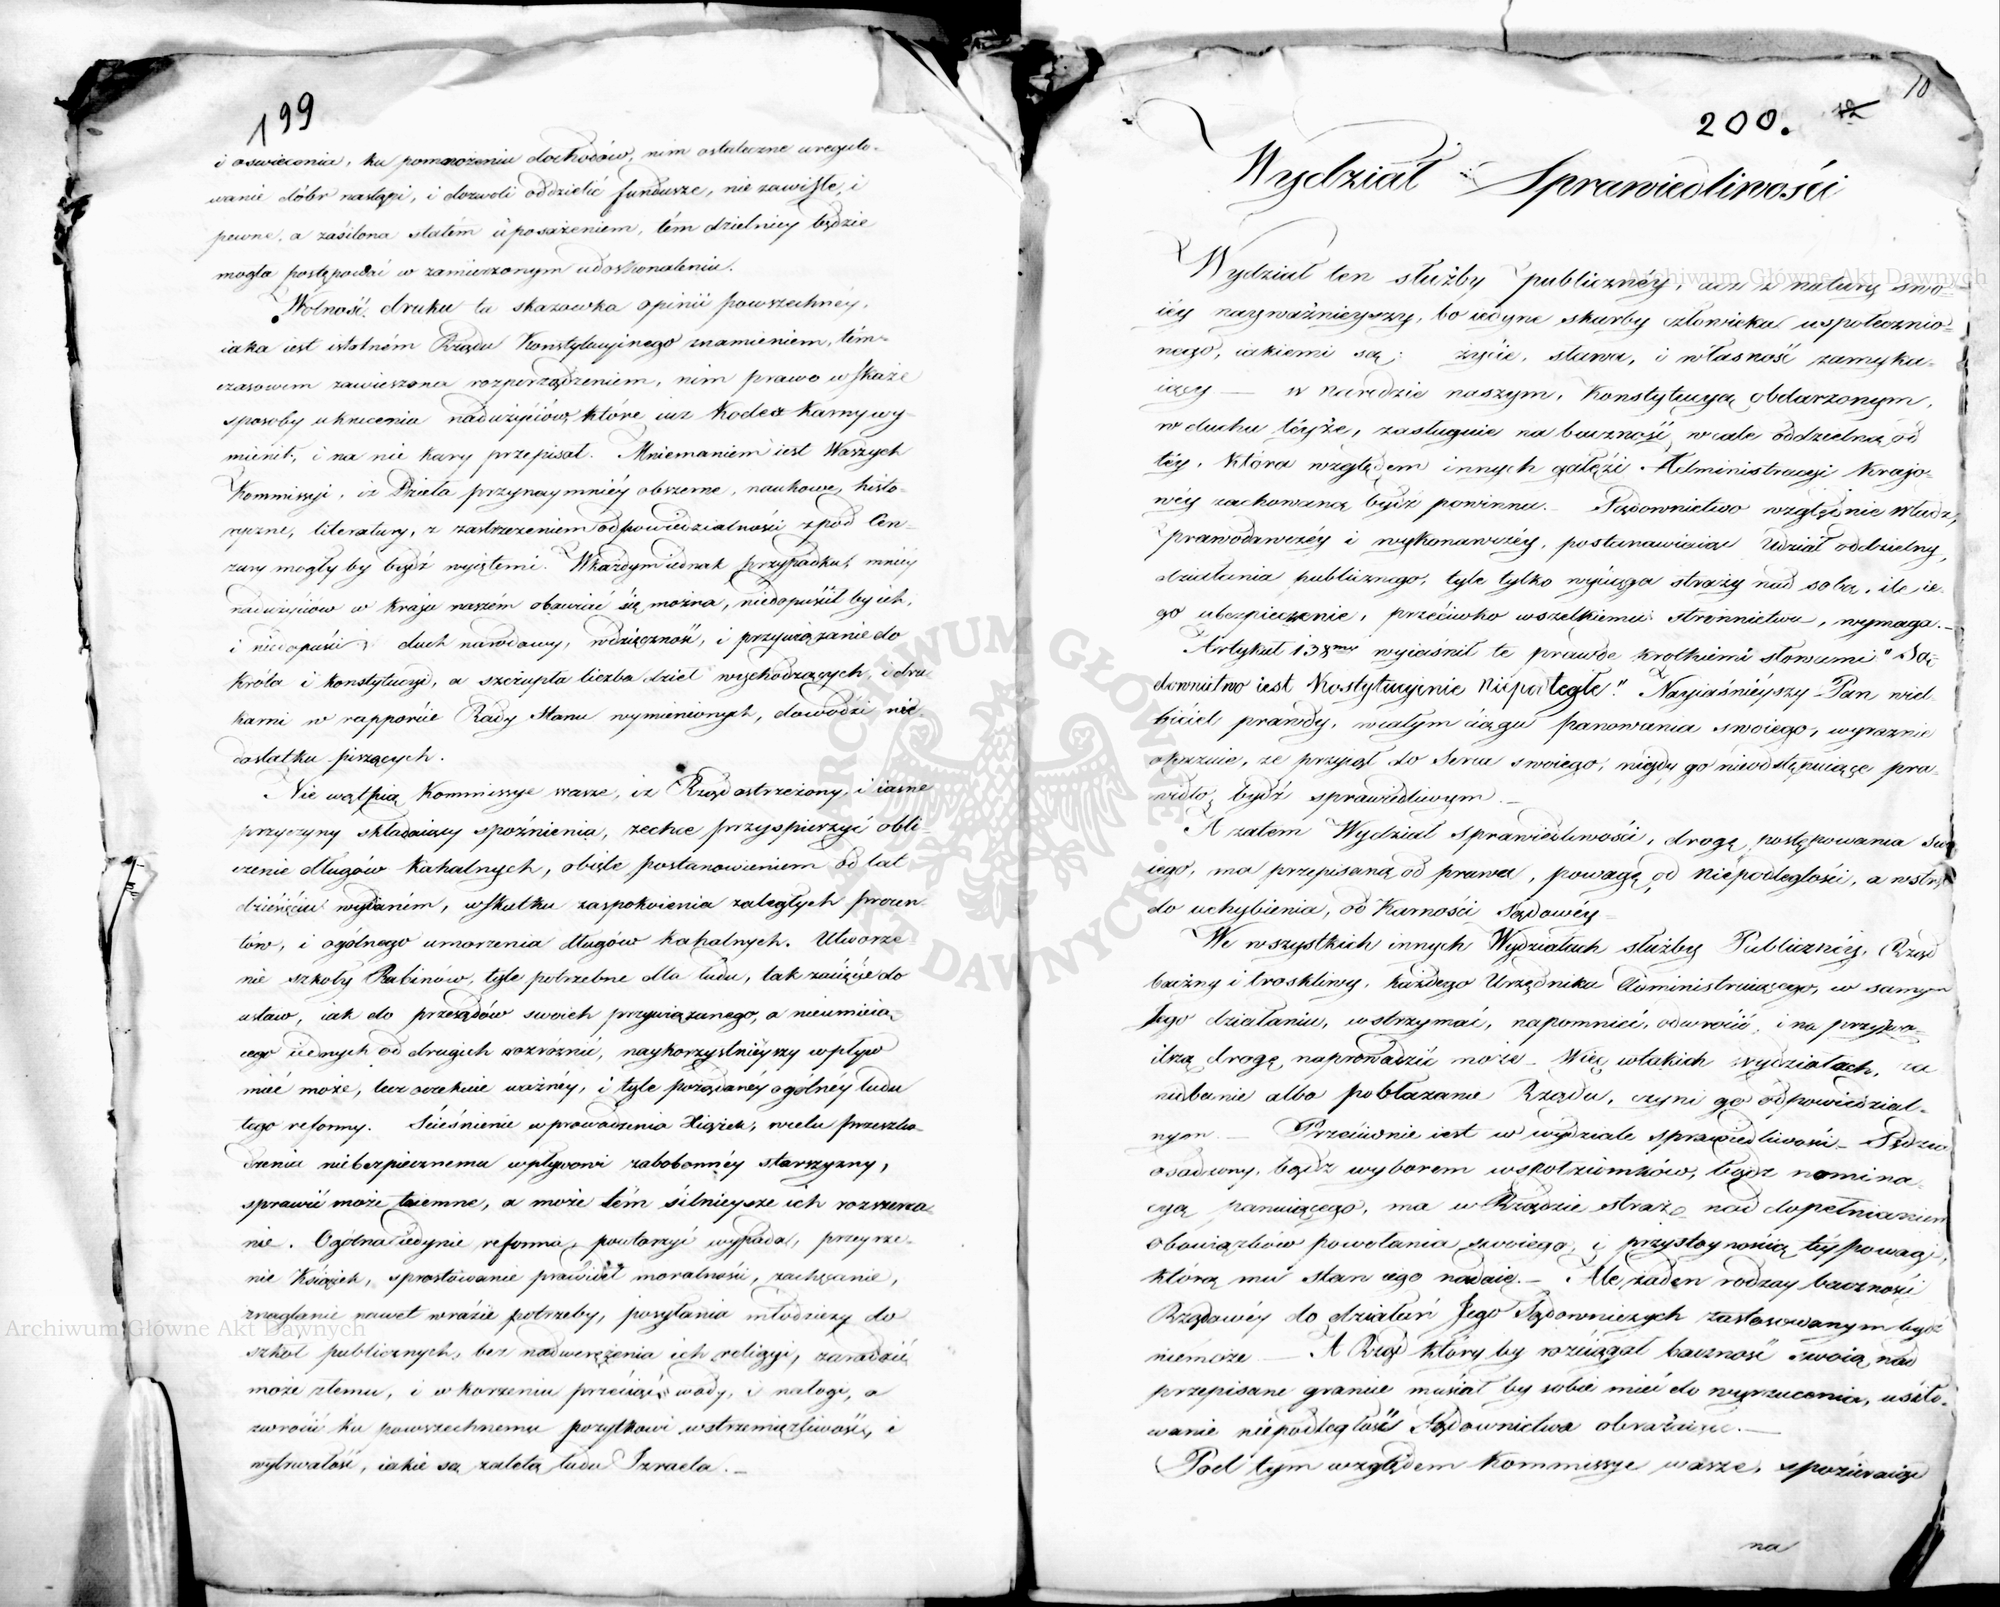 199
i oswiecenia, ku pomnożeniu dochodów, nim ostateczne uregulo-
wanie dóbr nastąpi, i dozwoli oddzielić fundusze, nie zawisłe, i
pewne, a zasilona stałem uposażeniem, tém dzielniey będzie
mogła postępować w zamierzonym udoskonaleniu.
Wolność druku ta skazowka opinii powszechney,
iaka iest istotném Rządu Konstytucyinego znamieniem, tém-
czasowem zawieszona rozporządzeniem, nim prawo wskaże
sposoby ukrócenia nadużyciów, które iuż Kodex Karny wy-
mienił, i na nie kary przepisał. Mniemaniem iest Waszych
Kommissyi, iż Dzieła przynaymniéy obszerne, naukowe, histo-
ryczne, literatury, z zastrzeżeniem odpowiedzialności z pod Cen-
zury mogły by bydź wyiętemi. W każdym iednak przypadku, mniéy
nadużyciów w kraju naszém obawiać się można, niedopuścił by ich,
i niedopuści duch narodowy, wdzięczność, i przywiązanie do
Króla i konstytucyi, a szczupła liczba dzieł wychodzących, i dru-
kami w rapporcie Rady Stanu wymienionych, dowodzi nie-
dostatku piszących.
Nie wątpią Kommissye wasze, iż Rząd ostrzeżony, i iasne
przyczyny składaiący spoźnienia, zechce przyspieszyć obli-
czenie długów Kahalnych, obięte postanowieniem od lat
dziesięciu wydaném, w skutku zaspokoienia zaległych procen-
tów, i ogólnego umorzenia długów kahalnych. Utworze-
nie szkoły Rabinów, tyle potrzebne dla ludu, tak zacięcie do
ustaw, iak do przesądów swoich przywiązanego, a nieumieią-
cego iednych od drugich rozróżnić, naykorzystnieyszy wpływ
mieć może, lecz oczekuie ważnéy, i tyle pożądanéy ogólnéy ludu
tego reformy. Scieśnienie wprowadzenia Xiążek, wielu przeszko-
dzenia niebezpiecznemu wpływowi zabobonnéy starszyzny,
sprawić może taiemne, a może tém silnieysze ich rozszerza-
nie. Ogólna iedynie reforma, powtórzyć wypada, przeyrze-
nie Książek, sprostowanie prawideł moralności, zachęcanie,
znaglanie nawet wrazie potrzeby, posyłania młodzieży do
szkół publicznych, bez nadwerężenia ich religyi, zaradzić
może złemu, i w korzeniu przeciąć wady, i nałogi, a
zwrócić ku powszechnemu pożytkowi wstrzemięźliwość, i
wytrwałość, iakie są zaletą ludu Izraela. _
10
200.
Wydział Sprawiedliwości
Wydział ten służby publiczney, iuż z natury swo-
iéy nayważnieyszy, bo iedyne skarby człowieka uspołecznio-
nego, iakiemi są: życie, sława, i własność zamyka-
iący — w narodzie naszym, Konstytucyą obdarzonym,
w duchu téyże, zasługuie na baczność, wcale oddzielną od
téy, która względem innych gałęzi Administracyi Krajo-
wéy zachowaną bydź powinna. — Sądownictwo względnie władz,
prawodawczéy i wykonawczéy, postanawiaiąc Udział oddzielny,
działania publicznego, tyle tylko wyciąga straży nad sobą, ile ie-
go ubezpieczenie, przeciwko wszelkiemu stronnictwu, wymaga. _
Artykuł 138my wyiaśnił te prawdę krótkiemi słowami "Są-
downictwo iest Konstytucyinie Niepodległe." Nayiaśnieyszy Pan wiel-
biciel prawdy, w całym ciągu panowania swoiego, wyraznie
okazuie, że przyiął do Serca swoiego, nigdy go nieodstępuiące pra-
widło, bydź sprawiedliwym. _
A zatem Wydział sprawiedliwości, drogę postępowania Swo-
iego, ma przepisaną od prawa, powagę od Niepodległości, a wstręt
do uchybienia, od Karności Sądowéy
We wszystkich innych Wydziałach służby Publicznéy, Rząd
baczny i troskliwy, każdego Urzędnika Administruiącego, w samym
Jego działaniu, wstrzymać, napomnieć, odwrócić, i na przyzwo-
itszą drogę naprowadzić może _ Więc w takich wydziałach, za
niedbanie albo pobłażanie Rządu, czyni go odpowiedzial-
nym. — Przeciwnie iest w wydziale sprawiedliwości _ Sędzia
osadzony, bądź wyborem współziomków, bądź nomina-
cyą panuiącego, ma w Rządzie straż nad dopełnianiem
obowiązków powołania swoiego, i przystoynością téy powagi,
którą mu stan iego nadaie. — Ale żaden rodzay baczności
Rządowéy do działań Jego Sądowniczych zastosowanym bydź
niemoże — A Rząd który by rozciągał baczność swoią nad
przepisane granice musiał by sobie mieć do wyrzucenia, usiło-
wanie niepodległość Sądownictwa obrażaiące. —
Pod tym względem Kommissye wasze, spozieraiąc
na
Archiwum Główne Akt Dawnych
Archiwum Główne Akt Dawnych
ARCHIWUM GŁÓWNE AKT DAWNYCH